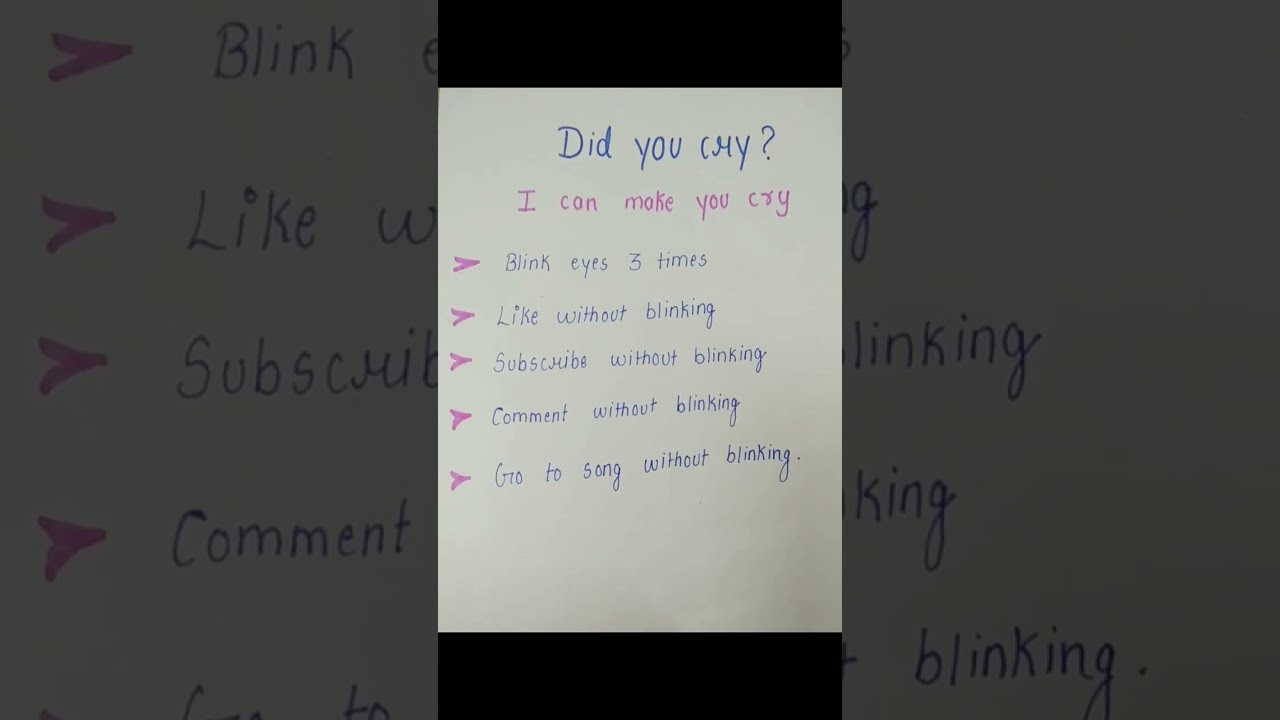 Did you cry?
I can make you cry
➤ Blink eyes 3 times
➤ Like without blinking
➤ Subscribe without blinking
➤ Comment without blinking
➤ Go to song without blinking.